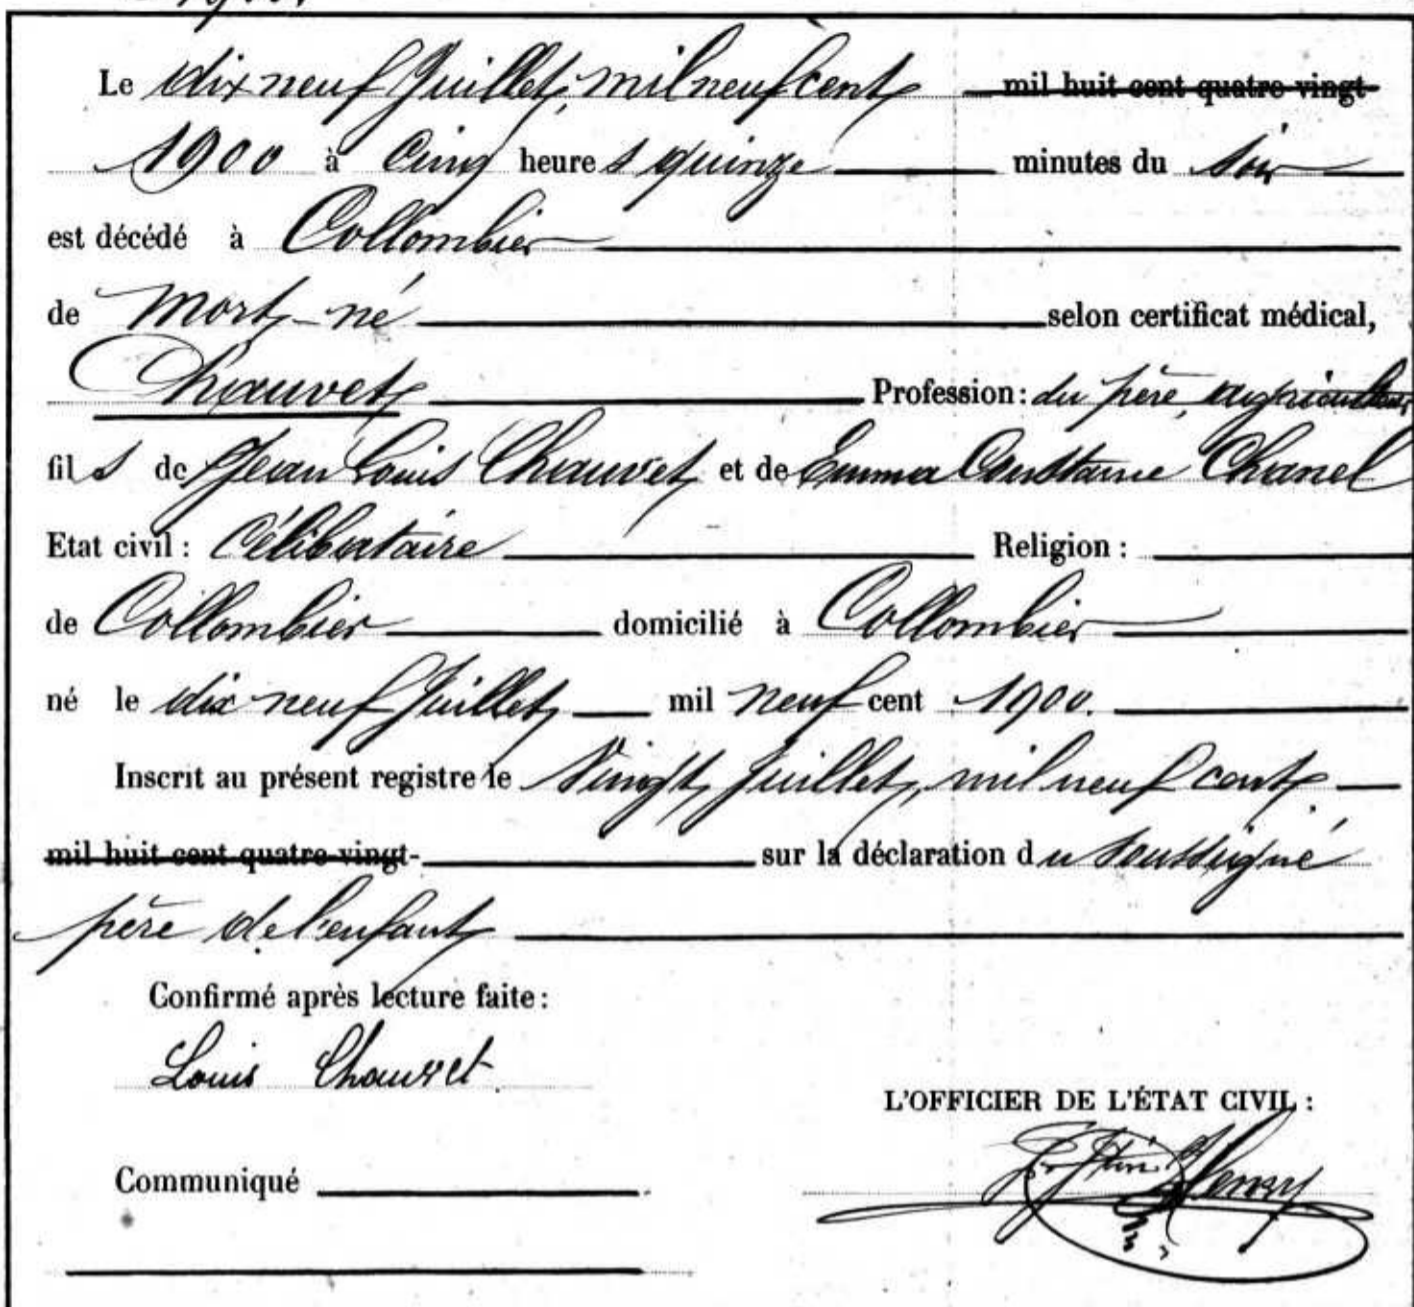 Le dix neuf Juillet, mil neuf cent mil huit cent quatre-vingt-
1900 à Cinq heures quinze minutes du soir
est décédé à Collombier
de Mort-né selon certificat médical,
Chauvet Profession: du père, agriculteur
fils de Jean Louis Chauvet et de Emma Constance Chanel
Etat civil: Célibataire Religion:
de Collombier domicilié à Collombier
né le dix neuf Juillet mil neuf cent 1900.
Inscrit au présent registre le Vingt Juillet, mil neuf cent
mil huit cent quatre-vingt- sur la déclaration du soussigné
père de l'enfant
Confirmé après lecture faite:
Louis Chauvet
L'OFFICIER DE L'ÉTAT CIVIL:
Henry
Communiqué